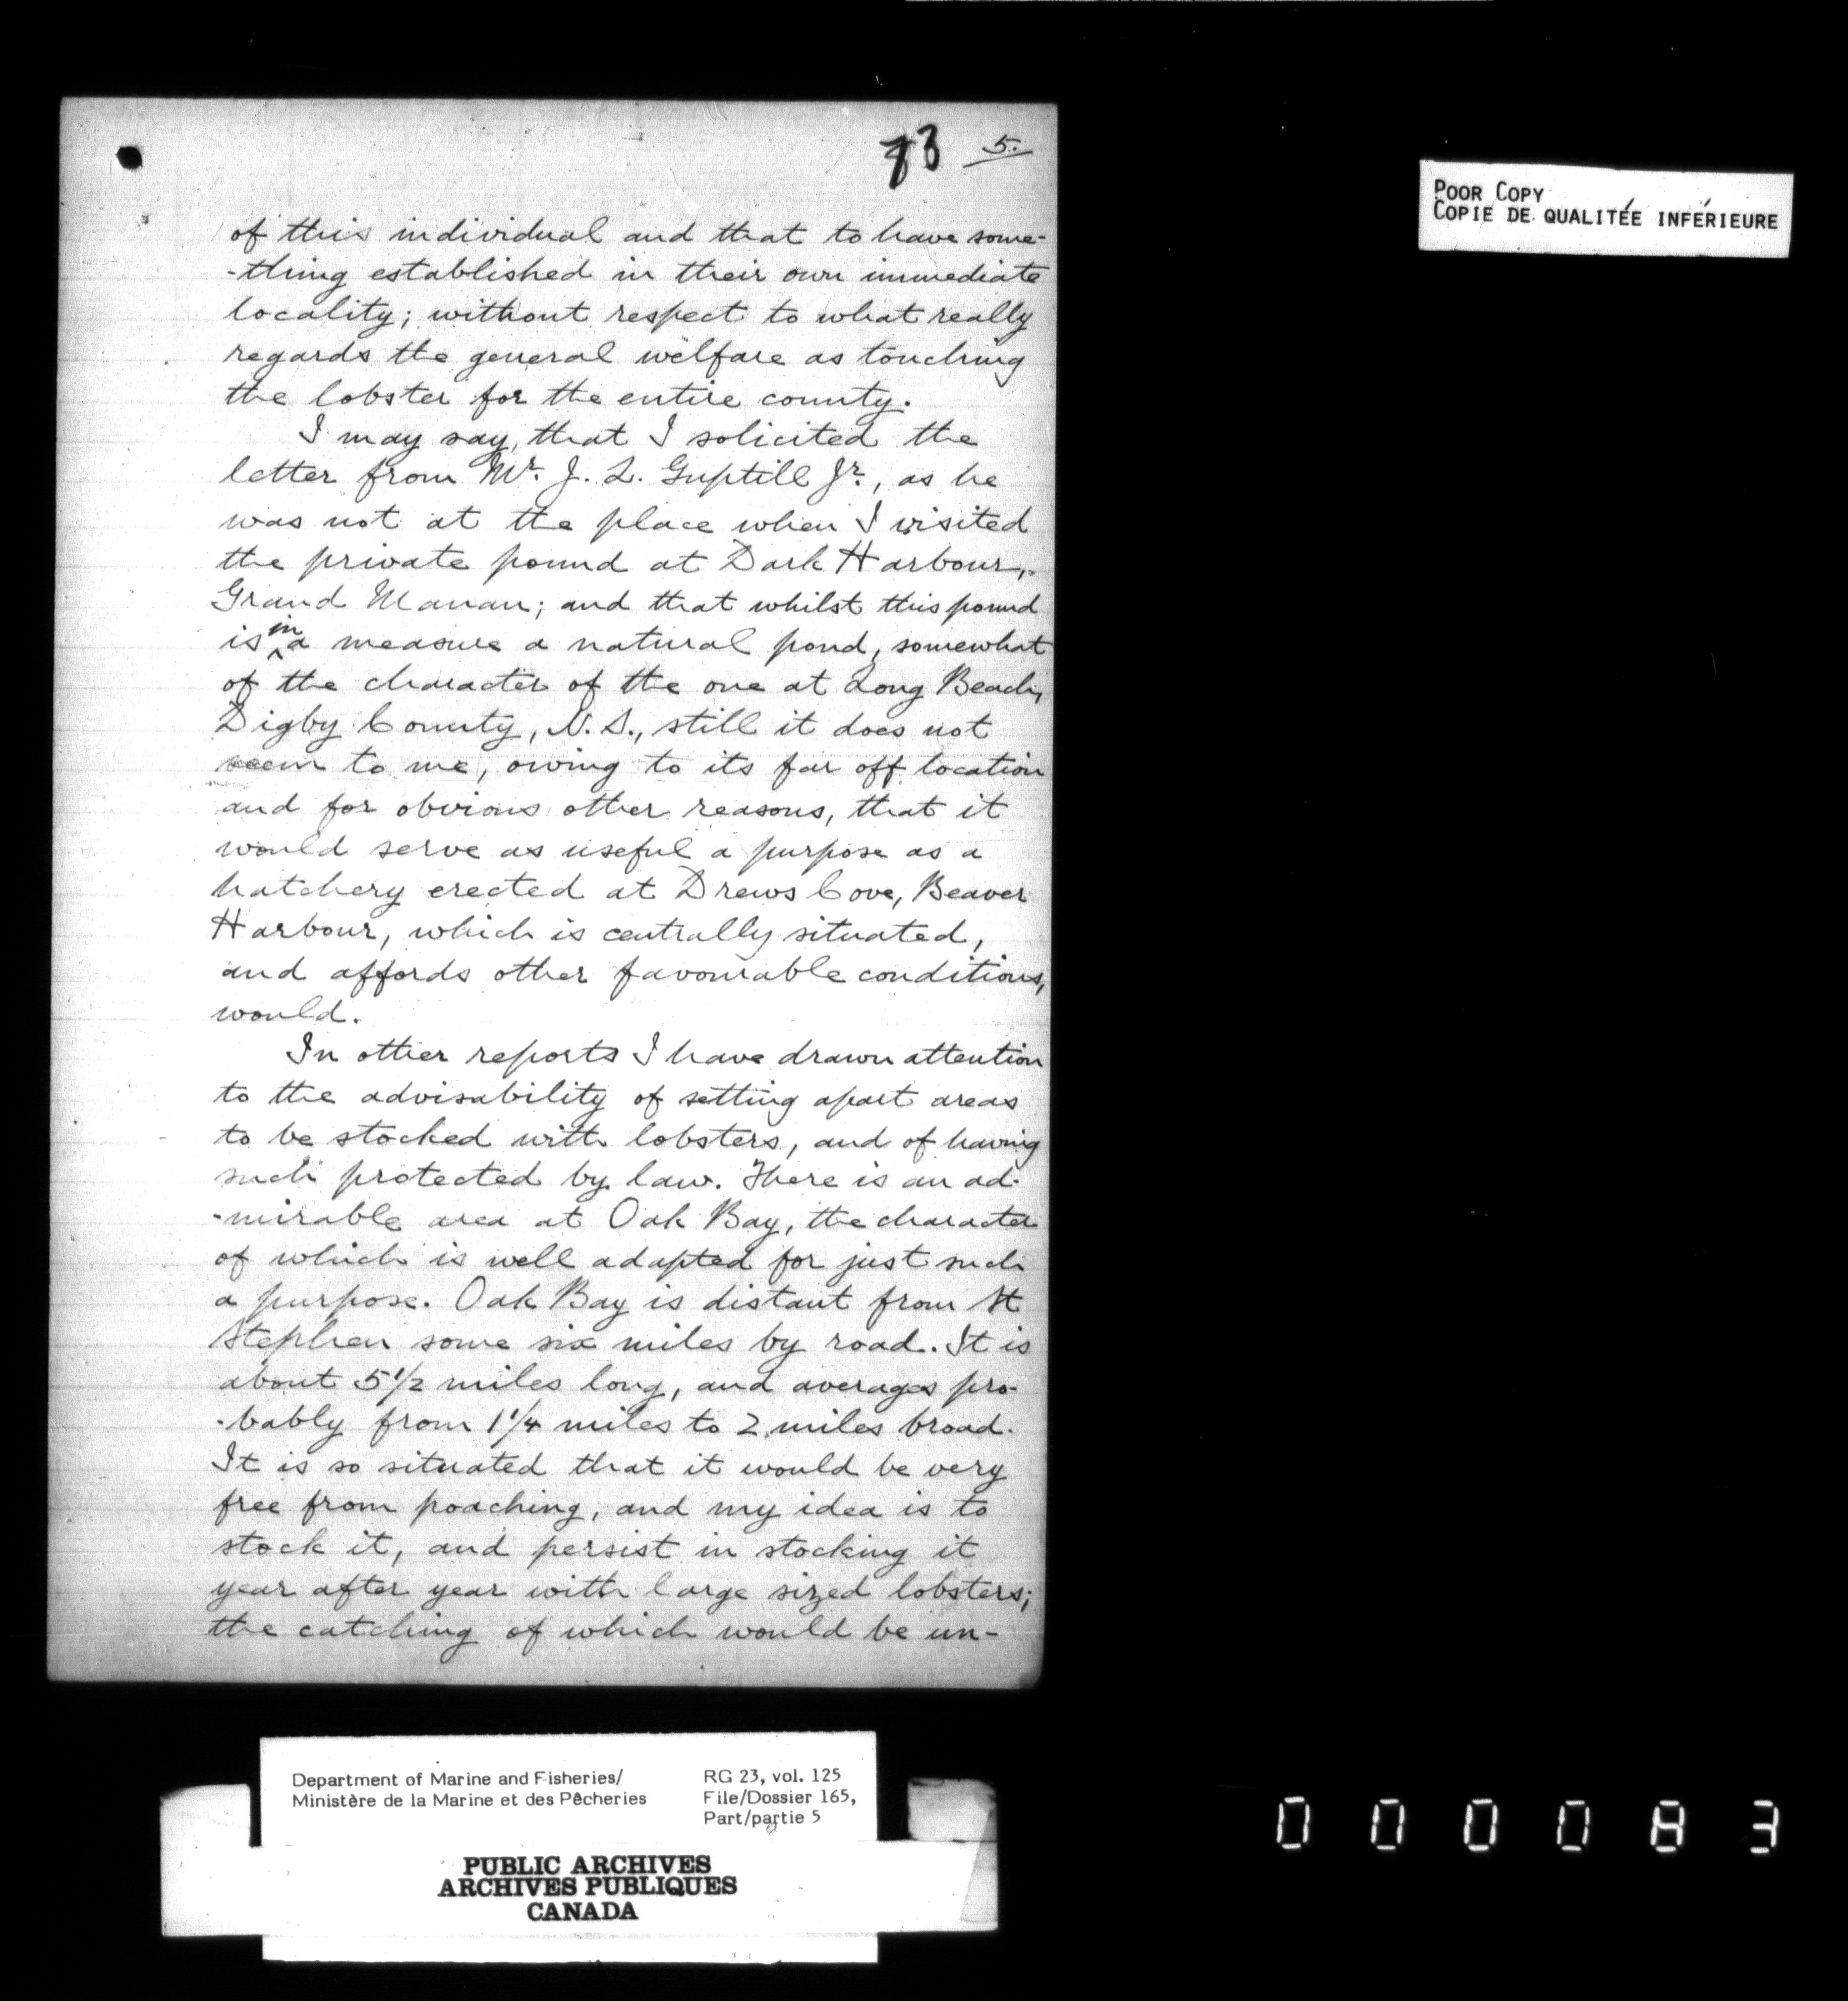 73 5.
POOR COPY
COPIE DE QUALITÉE INFÉRIEURE
of this individual and that to have some-
-thing established in their own immediate
locality; without respect to what really
regards the general welfare as touching
the lobster for the entire county.
I may say, that I solicited the
letter from Mr. J. L. Guptill Jr., as he
was not at the place when I visited
the private pound at Dark Harbour,
Grand Manan; and that whilst this pound
is in a measure a natural pond, somewhat
of the character of the one at Long Beach,
Digby County, N.S., still it does not
seem to me, owing to its far off location
and for obvious other reasons, that it
would serve as useful a purpose as a
hatchery erected at Drews Cove, Beaver
Harbour, which is centrally situated,
and affords other favourable conditions,
would.
In other reports I have drawn attention
to the advisability of setting apart areas
to be stocked with lobsters, and of having
such protected by law. There is an ad-
-mirable area at Oak Bay, the character
of which is well adapted for just such
a purpose. Oak Bay is distant from St
Stephen some six miles by road. It is
about 5 1/2 miles long, and averages pro-
-bably from 1 1/4 miles to 2 miles broad.
It is so situated that it would be very
free from poaching, and my idea is to
stock it, and persist in stocking it
year after year with large sized lobsters;
the catching of which would be un-
Department of Marine and Fisheries/
Ministère de la Marine et des Pêcheries
RG 23, vol. 125
File/Dossier 165,
Part/partie 5
PUBLIC ARCHIVES
ARCHIVES PUBLIQUES
CANADA
000083